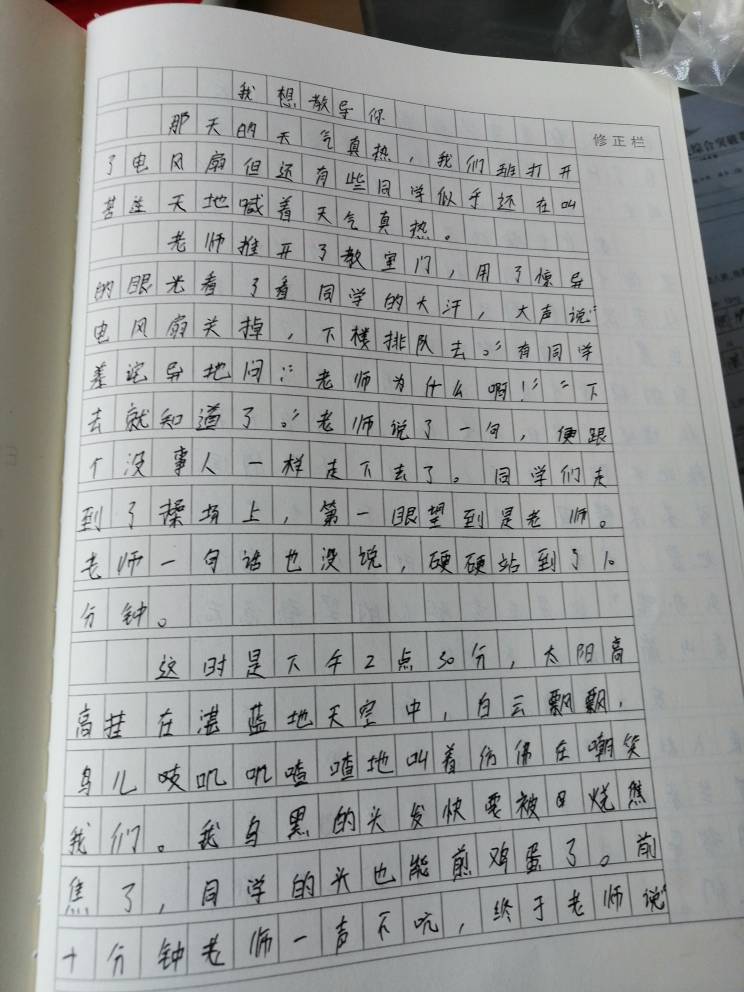 我想教导你
修正栏
综合突破
那天的天气真热，我们班打开
了电风扇但还有些同学似乎还在叫
苦连天地喊着天气真热。
老师推开了教室门，用了惊异
的眼光看了看同学的大汗，大声说“
电风扇关掉，下楼排队去。”有同学
差诧异地问：“老师为什么啊！”“下
去就知道了。”老师说了一句，便跟
个没事人一样走下去了。同学们走
到了操场上，第一眼望到是老师。
老师一句话也没说，硬硬站到了10
分钟。
这时是下午2点30分，太阳高
高挂在湛蓝地天空中，白云飘飘，
鸟儿吱叽叽喳喳地叫着仿佛在嘲笑
我们。我乌黑的头发快要被日烧焦
焦了，同学的头也能煎鸡蛋了。前
十分钟老师一声不吭，终于老师说“